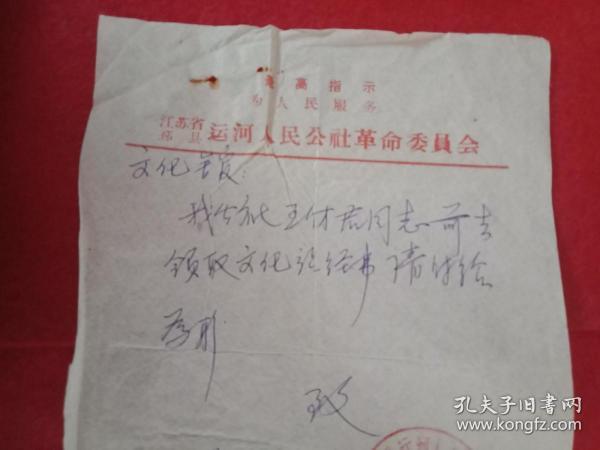 最高指示
为人民服务
江苏省
邳县 运河人民公社革命委员会
文化馆:
我公社王付君同志前去
领取文化站经书 请付给
为盼
致
孔夫子旧书网
www.kongfz.com